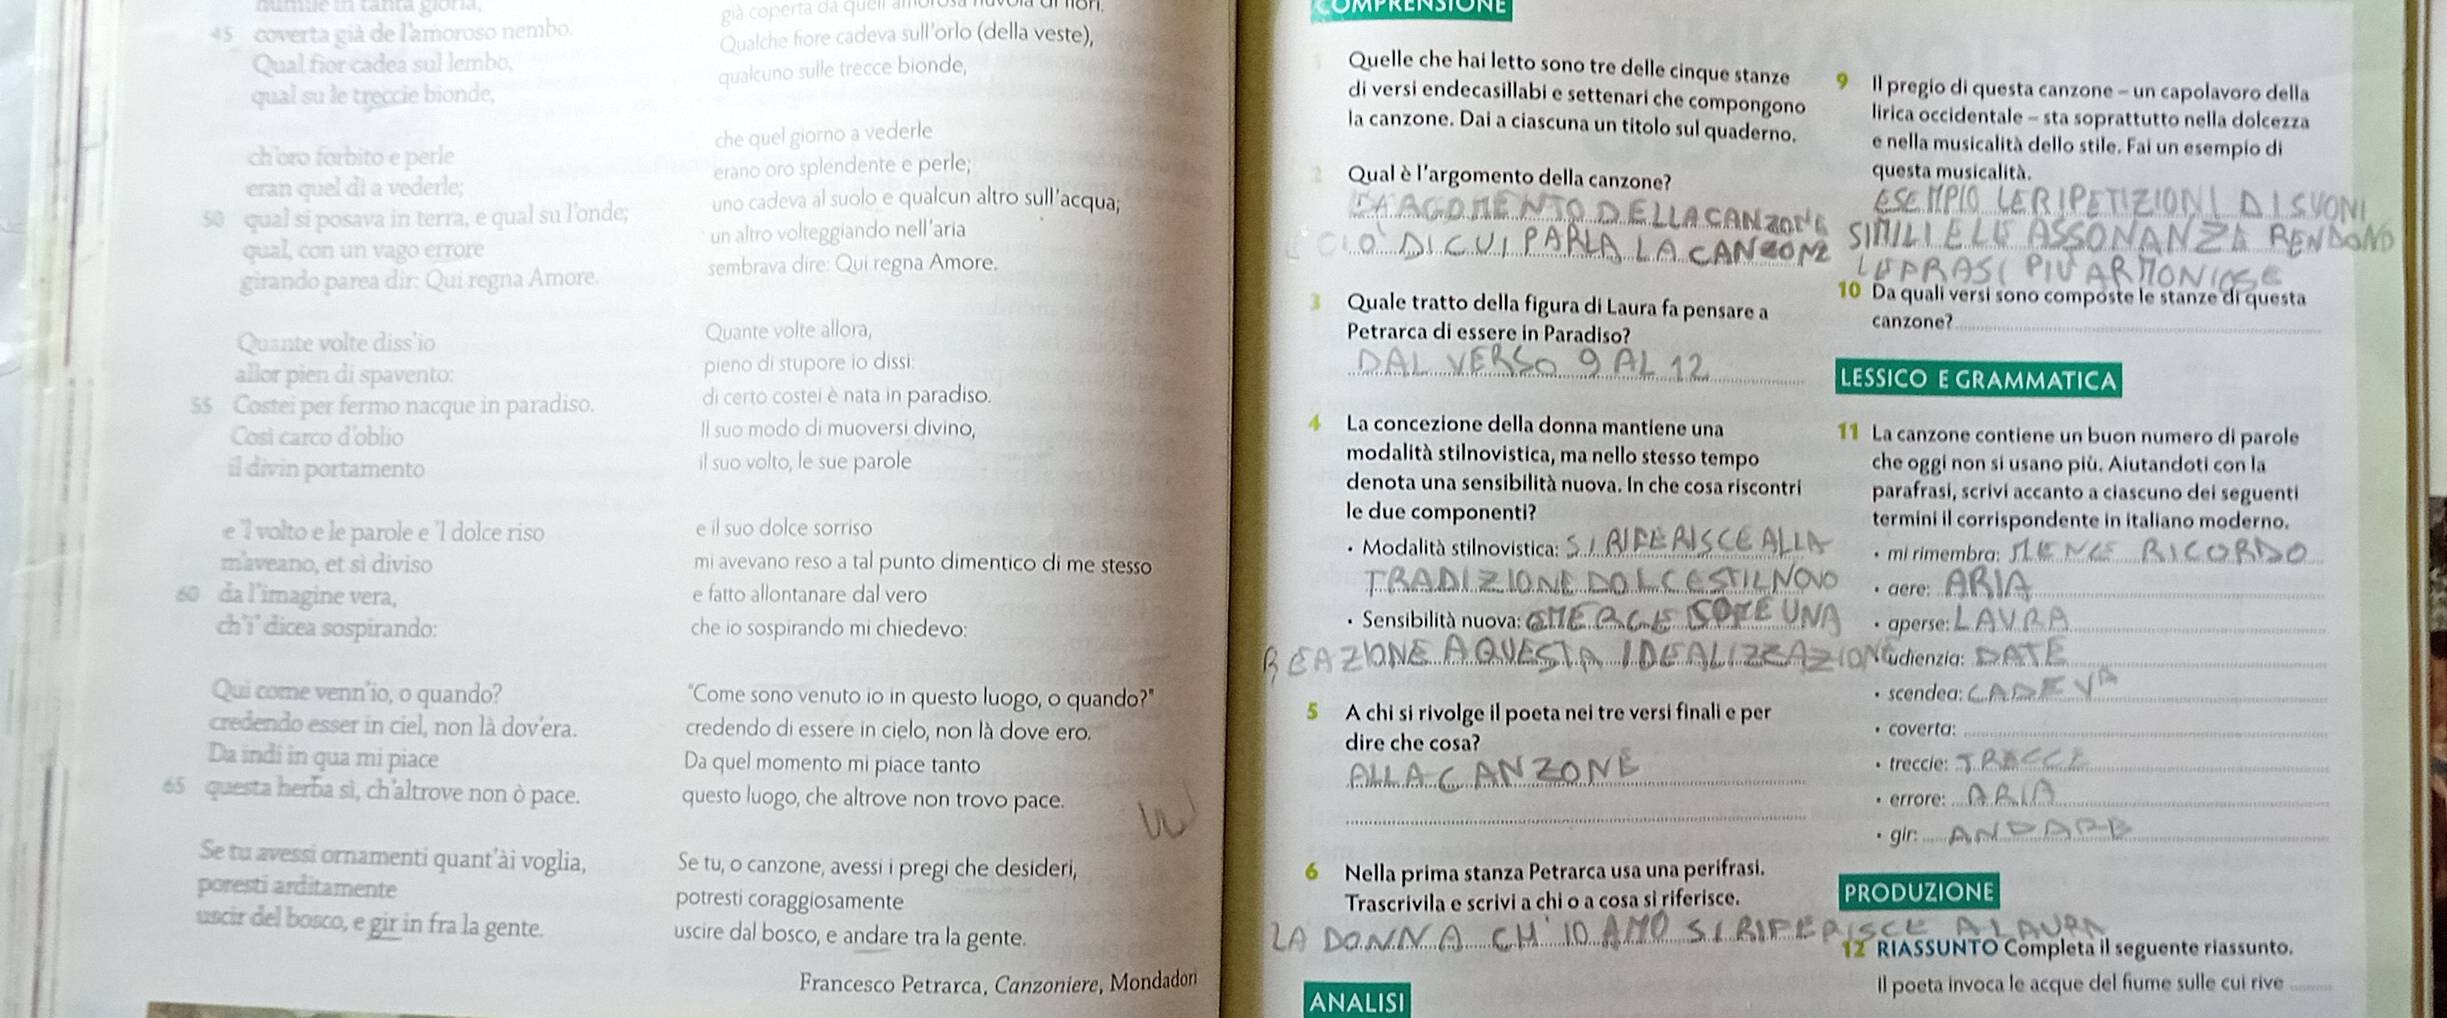 humile in tanta gloria,
45 coverta già de l'amoroso nembo.
Qual fior cadea sul lembo,
qual su le treccie bionde,
ch'oro forbito e perle
eran quel dì a vederle;
50 qual si posava in terra, e qual su l'onde;
qual, con un vago errore
girando parea dir: Qui regna Amore.
Quante volte diss'io
allor pien di spavento:
55 Costei per fermo nacque in paradiso.
Così carco d'oblio
il divin portamento
e 'l volto e le parole e 'l dolce riso
m'aveano, et sì diviso
60 da l'imagine vera,
ch'i' dicea sospirando:
Qui come venn'io, o quando?
credendo esser in ciel, non là dov'era.
Da indi in qua mi piace
65 questa herba sì, ch'altrove non ò pace.
Se tu avessi ornamenti quant'ài voglia,
poresti arditamente
uscir del bosco, e gir in fra la gente.
già coperta da quell'amorosa nuvola di fiori.
Qualche fiore cadeva sull'orlo (della veste),
qualcuno sulle trecce bionde,
che quel giorno a vederle
erano oro splendente e perle;
uno cadeva al suolo e qualcun altro sull'acqua;
un altro volteggiando nell'aria
sembrava dire: Qui regna Amore.
Quante volte allora,
pieno di stupore io dissi:
di certo costei è nata in paradiso.
Il suo modo di muoversi divino,
il suo volto, le sue parole
e il suo dolce sorriso
mi avevano reso a tal punto dimentico di me stesso
e fatto allontanare dal vero
che io sospirando mi chiedevo:
"Come sono venuto io in questo luogo, o quando?"
credendo di essere in cielo, non là dove ero.
Da quel momento mi piace tanto
questo luogo, che altrove non trovo pace.
Se tu, o canzone, avessi i pregi che desideri,
potresti coraggiosamente
uscire dal bosco, e andare tra la gente.
Francesco Petrarca, Canzoniere, Mondadori
COMPRENSIONE
1 Quelle che hai letto sono tre delle cinque stanze
di versi endecasillabi e settenari che compongono
la canzone. Dai a ciascuna un titolo sul quaderno.
2 Qual è l'argomento della canzone?
L'ARGOMENTO DELLA CANZONE
È CIO' DI CUI PARLA LA CANZONE
3 Quale tratto della figura di Laura fa pensare a
Petrarca di essere in Paradiso?
DAL VERSO 9 AL 12
4 La concezione della donna mantiene una
modalità stilnovistica, ma nello stesso tempo
denota una sensibilità nuova. In che cosa riscontri
le due componenti?
• Modalità stilnovistica: SI RIFERISCE ALLA
TRADIZIONE DOLCE STILNOVO
• Sensibilità nuova: EMERGE COME UNA
REAZIONE A QUESTA IDEALIZZAZIONE
5 A chi si rivolge il poeta nei tre versi finali e per
dire che cosa?
ALLA CANZONE
6 Nella prima stanza Petrarca usa una perifrasi.
Trascrivila e scrivi a chi o a cosa si riferisce.
LA DONNA CH'IO AMO SI RIFERISCE A LAURA
ANALISI
9 Il pregio di questa canzone – un capolavoro della
lirica occidentale – sta soprattutto nella dolcezza
e nella musicalità dello stile. Fai un esempio di
questa musicalità.
ESEMPIO LE RIPETIZIONI DI SUONI
SIMILI E LE ASSONANZE RENDONO
LE FRASI PIU ARMONIOSE
10 Da quali versi sono composte le stanze di questa
canzone?
LESSICO E GRAMMATICA
11 La canzone contiene un buon numero di parole
che oggi non si usano più. Aiutandoti con la
parafrasi, scrivi accanto a ciascuno dei seguenti
termini il corrispondente in italiano moderno.
• mi rimembra: ME NE RICORDO
• aere: ARIA
• aperse: LAURA
udienzia: DATE
• scendea: CADEVA
• coverta:
• treccie: TRECCE
• errore: ARIA
• gir: ANDARE
PRODUZIONE
12 RIASSUNTO Completa il seguente riassunto.
Il poeta invoca le acque del fiume sulle cui rive